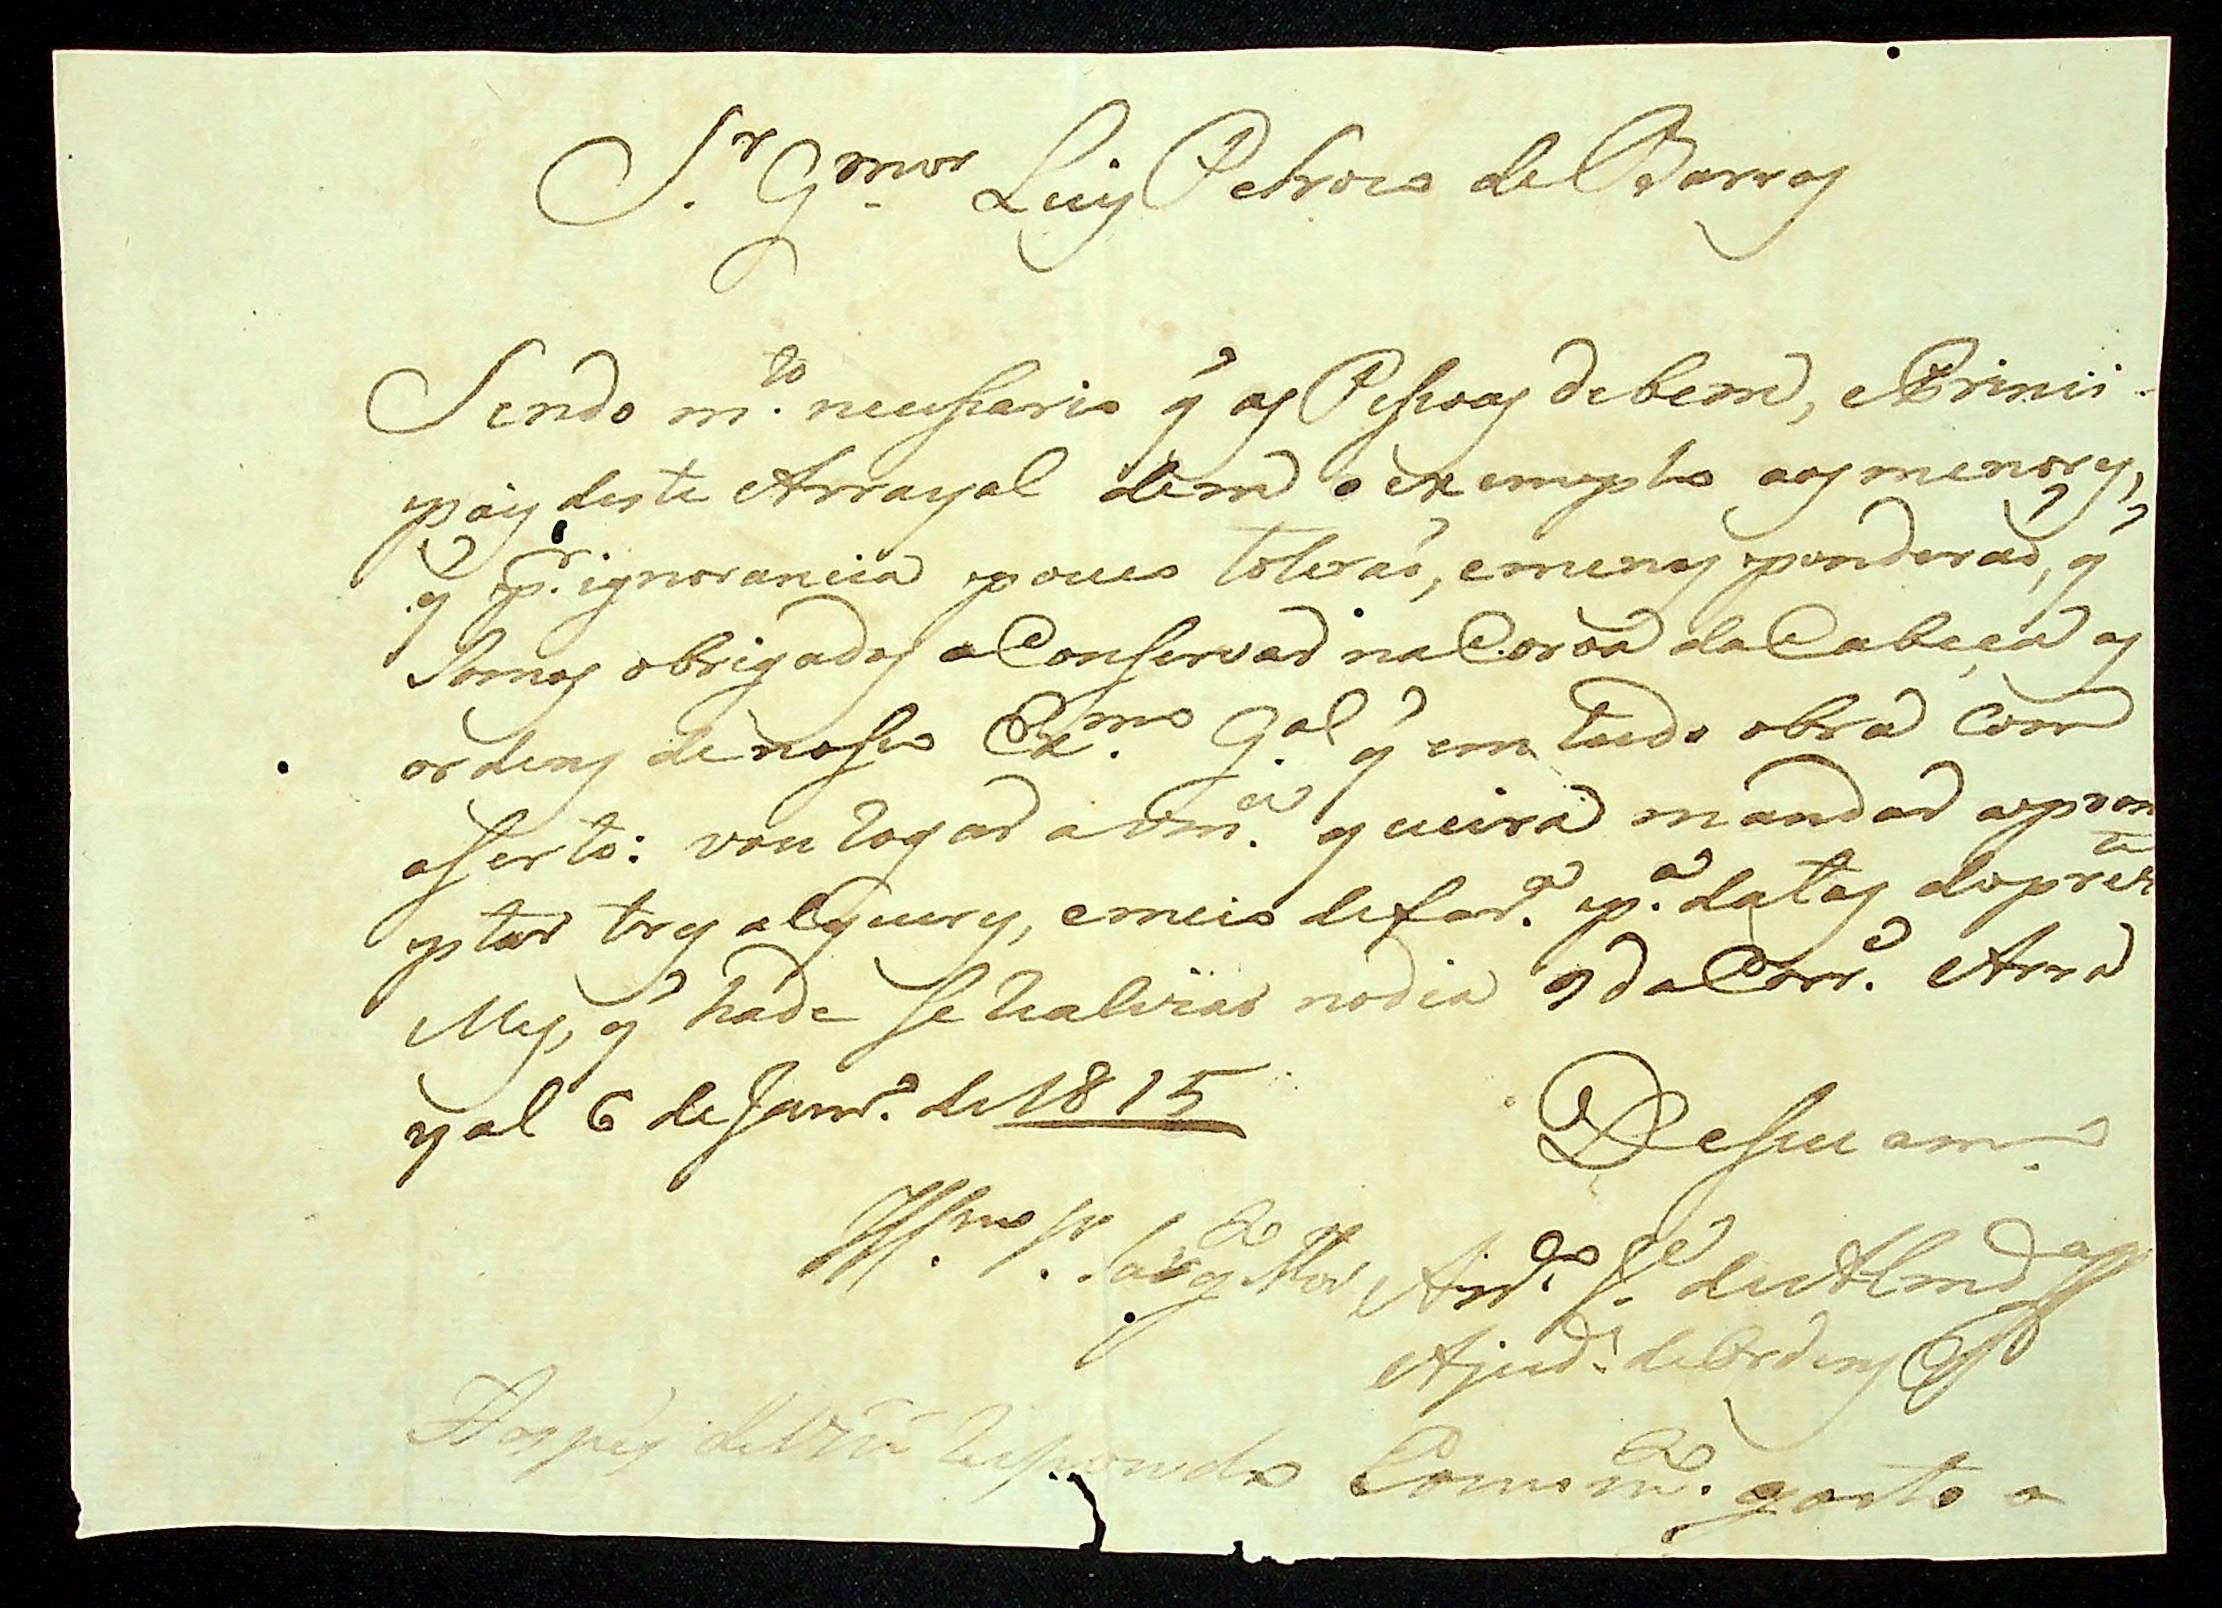 Sr. Gmor Luis Pedrozo de Barros
Sendo mto. necessario q' as Pessoas de bem, e Princi-
pais deste Arrayal dem o exemplo aos menores,
q' pr. ignorancia pouco tolerão, e menos ponderão, q'
somos obrigados a Conservar na Coroa da Cabeça as
ordens de nosso Exmo. Gal. q' em tudo obra com
aserto: vou rogar a vmce. queira mandar apron
ptar tres alqueres, e meio de fara. pa. datas do prezte
Mes, q' hade se realizar no dia 9 da Corre. Arra
yal 6 de Janro. de 1815
De seu amo.
Illmo. Sr. Sargto Mor Anto. Je. de Almda
Ajude. de Ordens
Aos pes de vmce respondo Com mto. gosto o